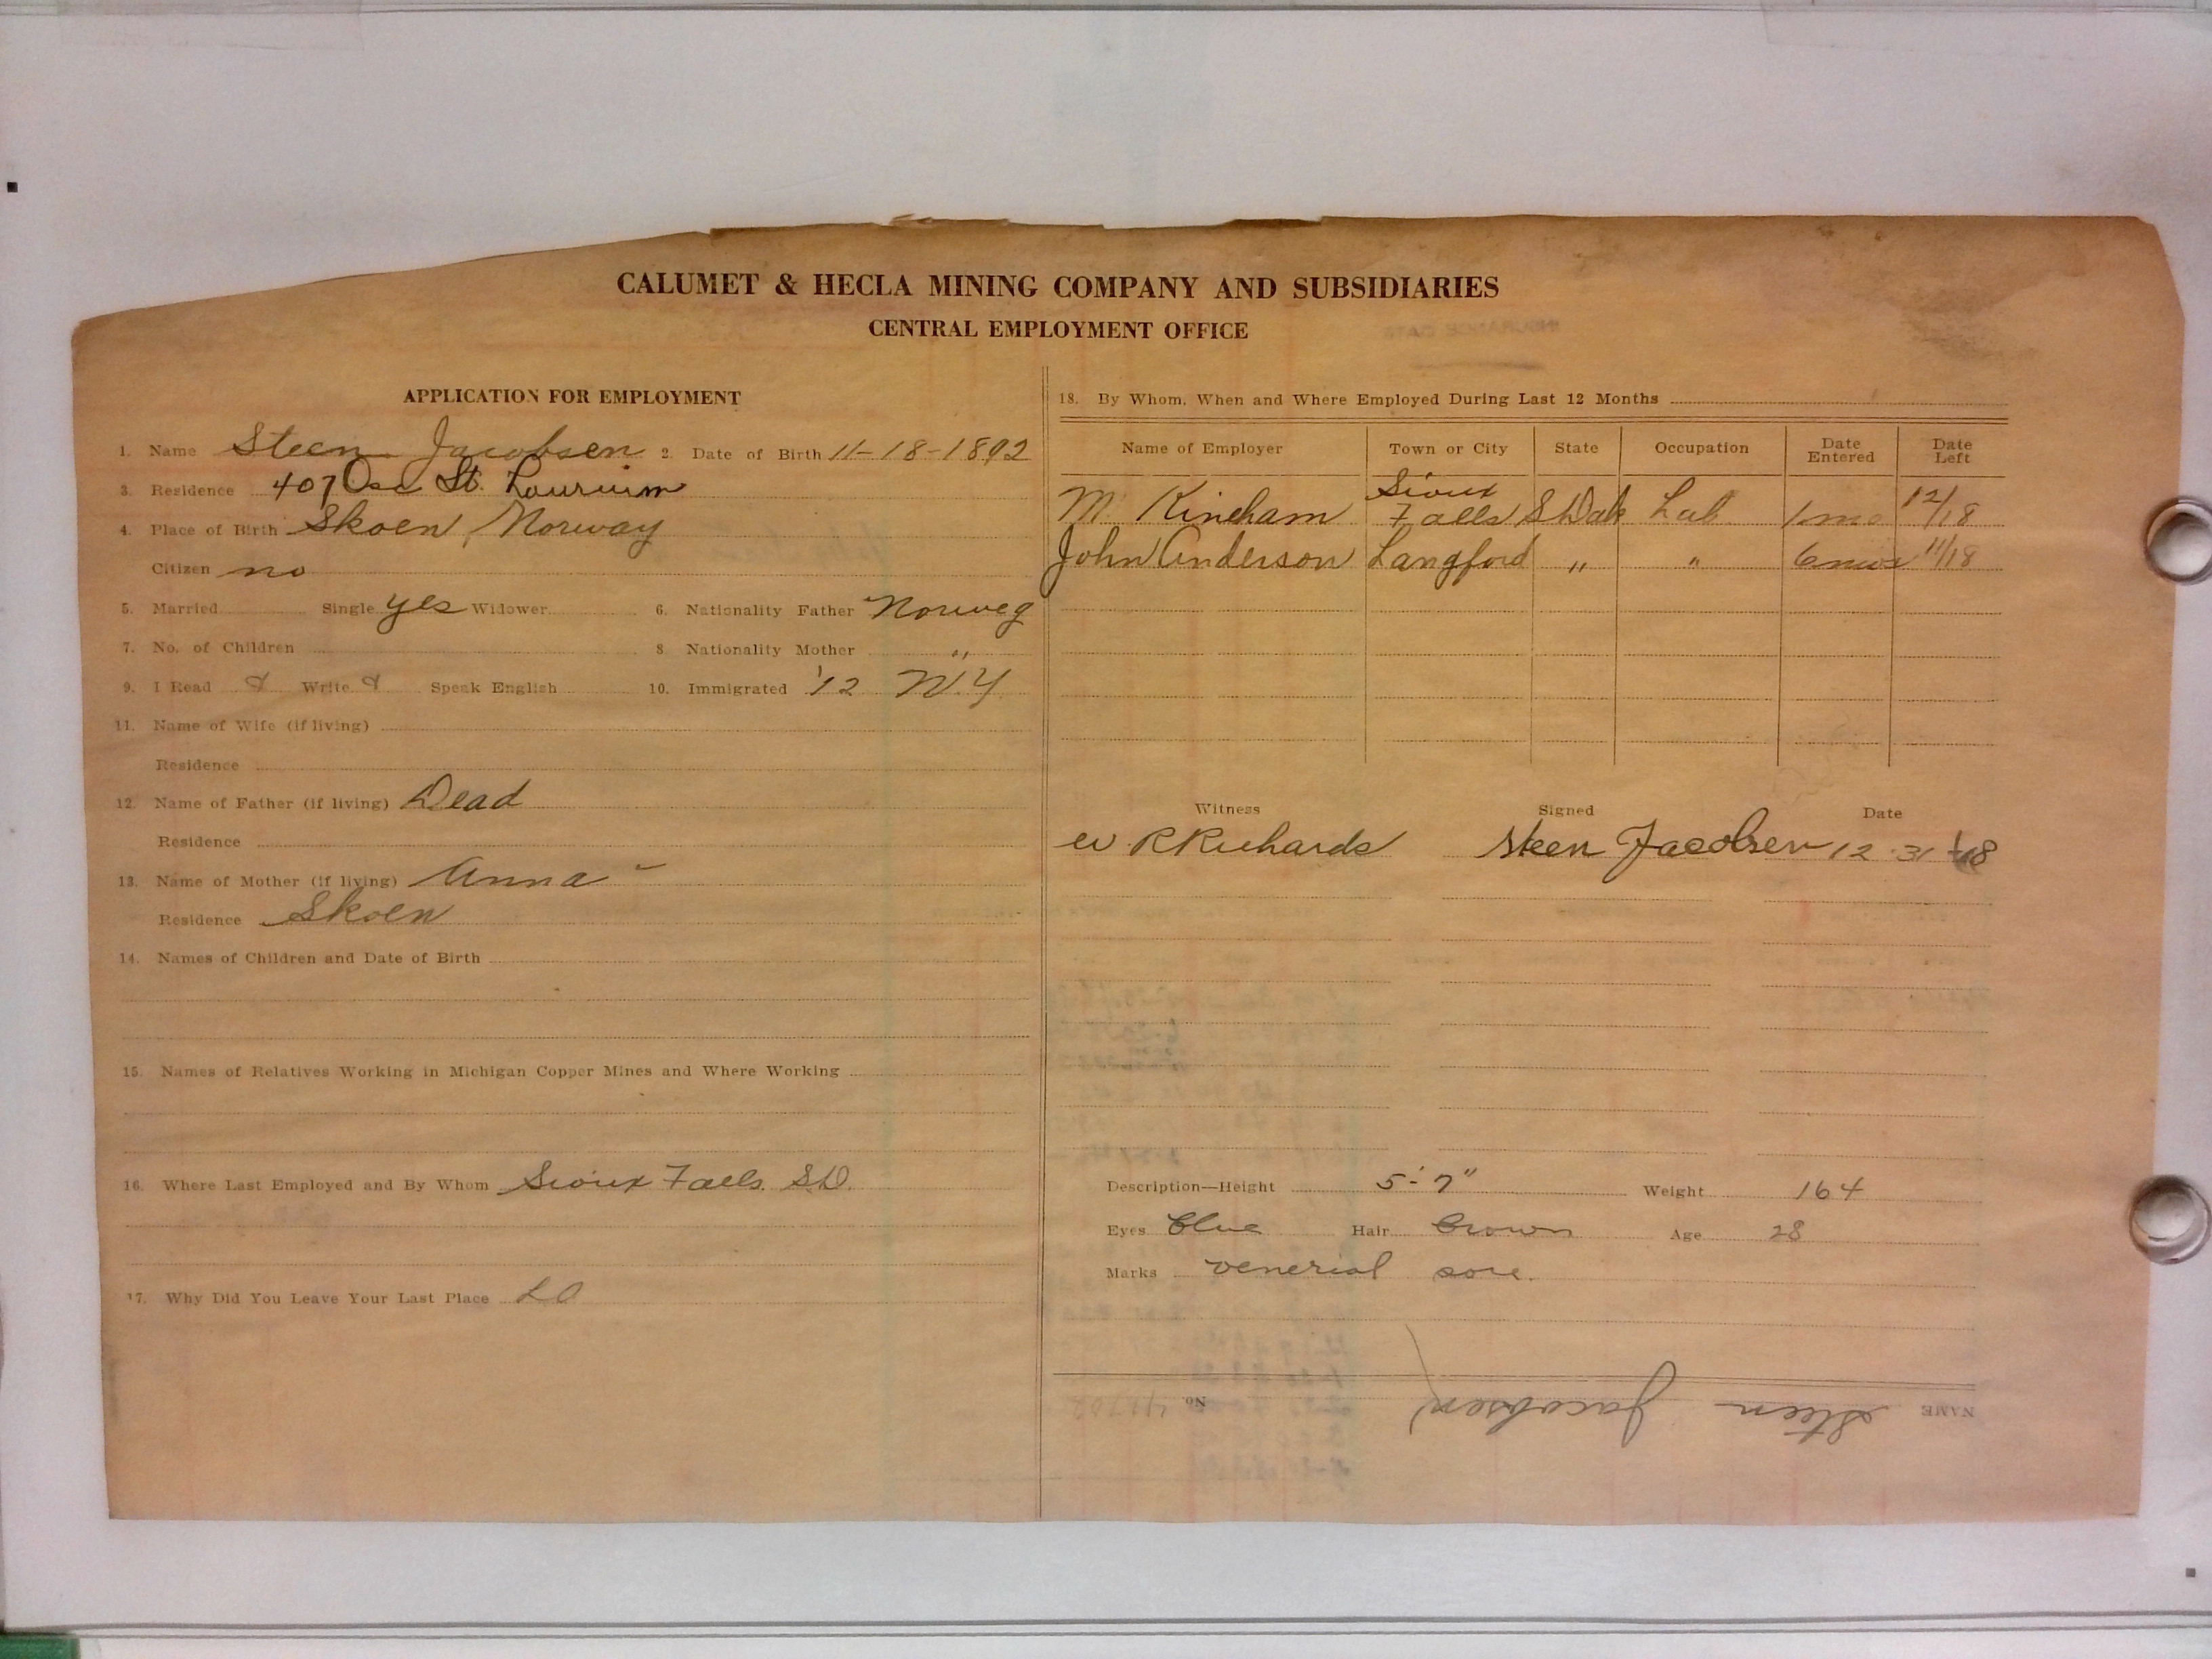 CALUMET & HECLA MINING COMPANY AND SUBSIDIARIES
CENTRAL EMPLOYMENT OFFICE
APPLICATION FOR EMPLOYMENT
1. Name Steen Jacobsen 2. Date of Birth 11-18-1892
3. Residence 407 St. Laurium
4. Place of Birth Skoen, Norway
Citizen no
5. Married Single yes Widower 6. Nationality Father Norweg
7. No. of Children 8. Nationality Mother "
9. I Read Write Speak English 10. Immigrated '12 N.Y.
11. Name of Wife (if living)
Residence
12. Name of Father (if living) Dead
Residence
13. Name of Mother (if living) Anna -
Residence Skoen
14. Names of Children and Date of Birth
15. Names of Relatives Working in Michigan Copper Mines and Where Working
16. Where Last Employed and By Whom Sioux Falls. S.D.
17. Why Did You Leave Your Last Place
18. By Whom, When and Where Employed During Last 12 Months
Name of Employer Town or City State Occupation Date Entered Date Left
M. Kineham Sioux Falls S Dak Lab 1 mo 12/18
John Anderson Langford " " 6 mos 11/18
Witness Signed Date
W. R Richards Steen Jacobsen 12-31-18
Description—Height 5'-7" Weight 164
Eyes Blue Hair Brown Age 28
Marks venerial sore.
NAME Steen Jacobsen No.